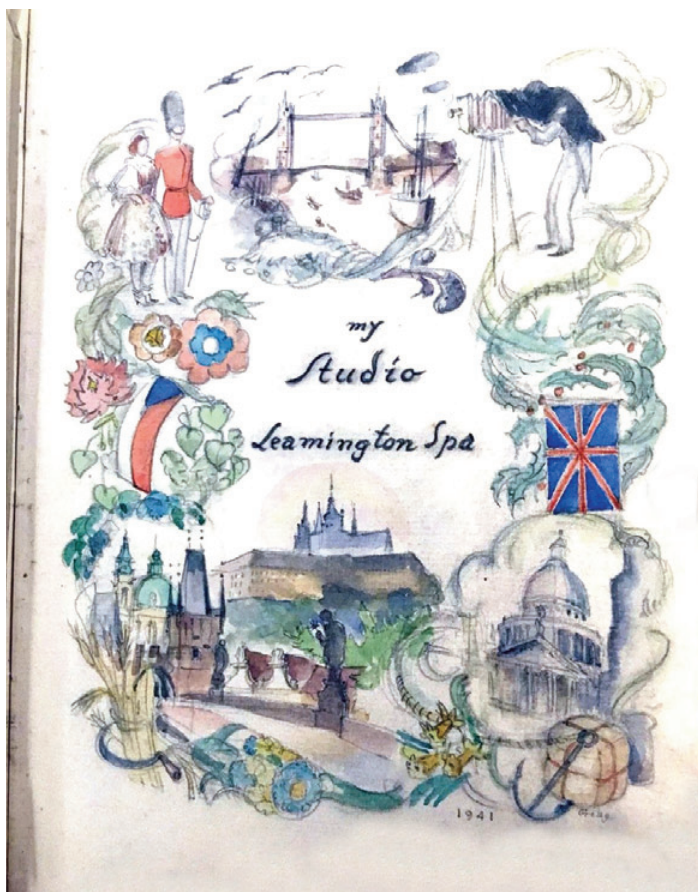 my
Studio
Leamington Spa
1941